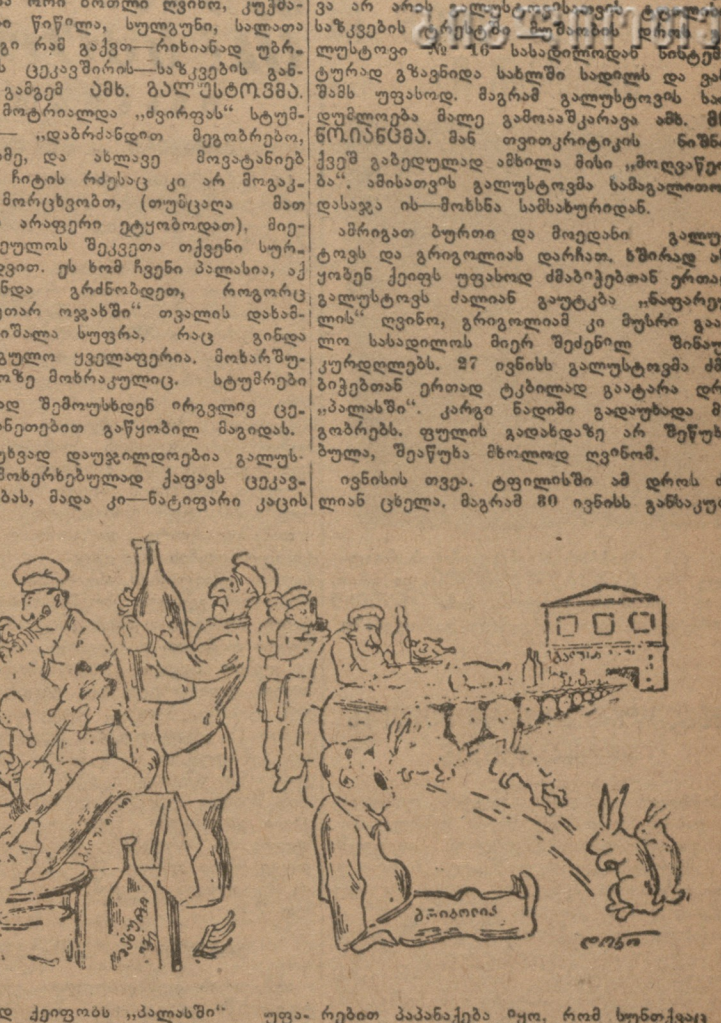 ი წიწილა, სულგუნი, სალათა
გი რამ გაქვთ—რიხიანად უბრ-
ს ცეკავშირის—საზკვების გან-
გამგემ ამხ. გალუსტოვმა.
მოტრიალდა „ძვირფას“ სტუმ-
— „დაბრძანდით მეგობრებო,
ომე, და ახლავე მოვატანიებ
ჩიტის რძესაც კი არ მოგაკ-
მორცხვობთ, (თუმცაღა მათ
არაფერი ეტყობოდათ), მიე-
ეულოს შეკვეთა თქვენი სურ-
ვით. ეს ხომ ჩვენი პალასია, აქ
ნდა გრძნობდეთ, როგორც
უთარ ოჯახში“ თვალის დახამ-
იშალა სუფრა, რაც გინდა
გულო ყველაფერია. მოხარშუ-
ოზე მოხრაკულიც. სტუმრები
ად შემოუსხდენ ირგვლივ ცე-
ნეთებით გაწყობილ მაგიდას.
უხვად დაუჯილდოებია გალუს-
მოხერხებულად ქაფავს ცეკავ-
ბას, მადა კი—ნატიფარი კაცის
ვა არ არის გალუსტოვისთვის
საზკვების ტრესტში მუშაობის დროს
ლუსტოვი № 16 სასადილოდან სისტემ
ტურად გზავნიდა სახლში სადილს და ვა
შამს უფასოდ. მაგრამ გალუსტოვის სა
დუმლოება მალე გამოააშკარავა ამხ. მი
ნოიანცმა. მან თვითკრიტიკის ნიშნ
ქვეშ გაბედულად ამხილა მისი „მოღვაწეო
ბა“. ამისათვის გალუსტოვმა სამაგალითო
დასაჯა ის—მოხსნა სამსახურიდან.
ამრიგათ ბურთი და მოედანი გალუ
ტოვს და გრიგოლიას დარჩათ. ხშირად ა
ყობენ ქეიფს უფასოდ ძმაბიჭებთან ერთა
გალუსტოვს ძალიან გაუტკბა „ნაფარე
ლის“ ღვინო, გრიგოლიამ კი მუსრი გაა
ლო სასადილოს მიერ შეძენილ შინაუ
კურდღლებს. 27 ივნისს გალუსტოვმა ძმ
ბიჭებთან ერთად ტკბილად გაატარა დრ
„პალასში“. კარგი ნადიმი გადაუხადა მ
გობრებს. ფულის გადახდაზე არ შეწუხ
ბულა, შეაწუხა მხოლოდ ღვინომ.
ივნისის თვეა. ტფილისში ამ დროს ძ
ლიან ცხელა. მაგრამ 30 ივნისს განსაკუ
გრიგოლია
დონი
დ ქეიფობს „პალასში“ უფა-
რებით პაპანაქება იყო, რომ სუნთქვაც